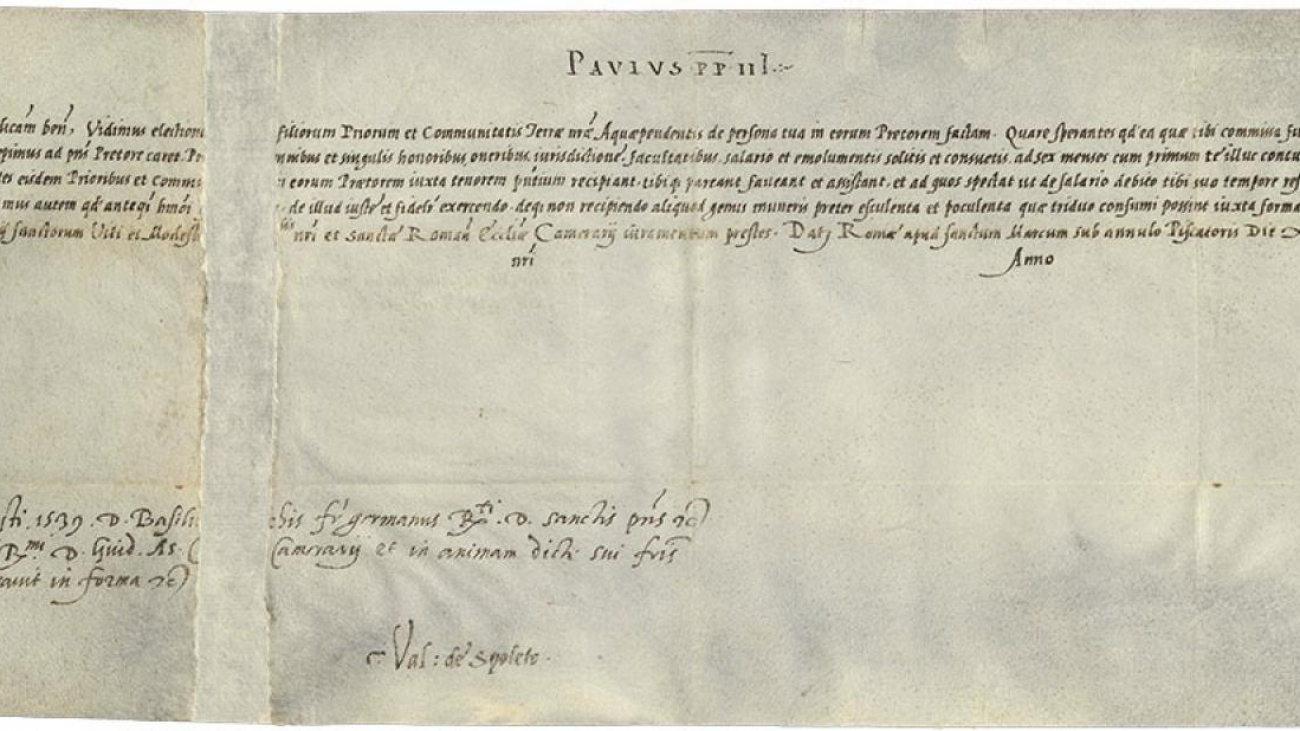 PAVLVS PP III
licam ben, Vidimus election filiorum Priorum et Communitatis Terræ nræ Aquæpendentis de persona tua in eorum Pretorem factam. Quare sperantes qd ea quæ tibi commissa fu
epimus ad pns Pretore caret. mnibus et singulis honoribus oneribus iurisdictione, facultatibus, salario et emolumentis solitis et consuetis, ad sex menses cum primum te illuc contu
es eisdem Prioribus et Commu eorum Prætorem iuxta tenorem pntium recipiant, tibiq pareant faueant et assistant, et ad quos spectat ut de salario debito tibi suo tempore res
mus autem qd anteq hmoi de illud iuste et fideli exercendo, deq non recipiendo aliquod genus muneris preter esculenta et poculenta quæ triduo consumi possint iuxta forma
ij sanctorum Viti et Modesti nri et Sanctæ Roman Ecclie Camerarij iuramentum prestes. Dat Romæ apud sanctum Marcum sub annulo Piscatoris Die
nri Anno
sti 1539. D. Basili chis fr germanus R.ti D. sanctis pns zc
R.mi D. Guid. As. Camerarij et in animam dicti sui fris
rauit in forma zc
Val: de Spoleto.